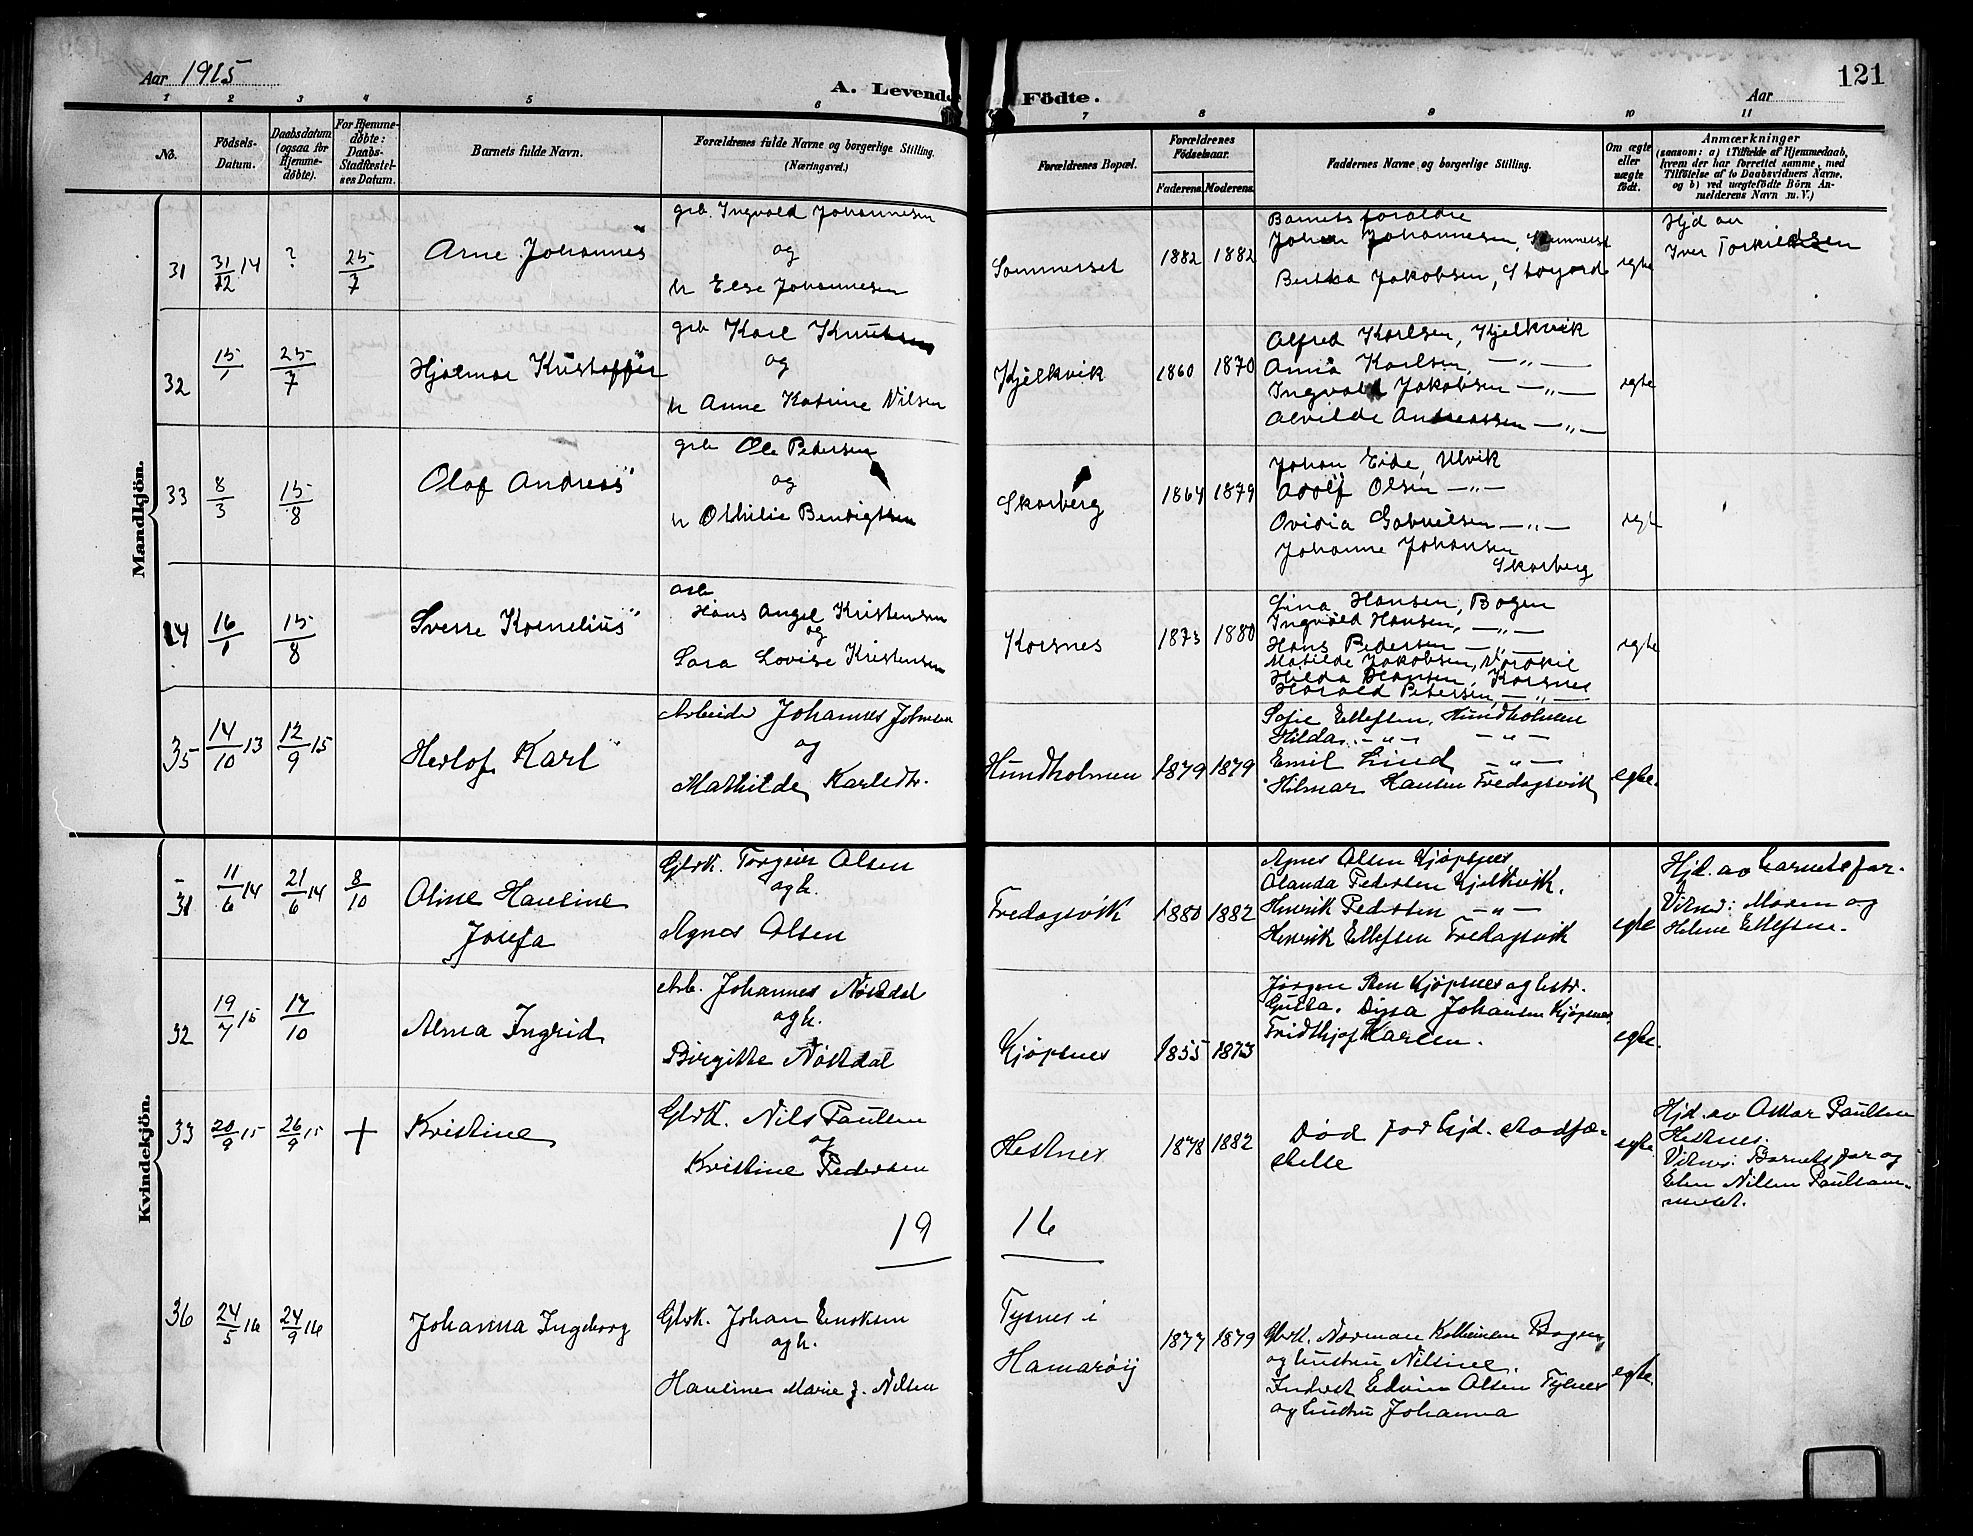 Aar 1915
A. Levende Födte.
121
Aar
1 2 3 4 5 6 7 8 9 10 11
No.
Födsels-Datum.
Daabsdatum (ogsaa for Hjemmedøbte).
For Hjemmedøbte: Daabs-Stadfestelses Datum.
Barnets fulde Navn.
Forældrenes fulde Navne og borgerlige Stilling. (Næringsvei.)
Forældrenes Bopæl.
Forældrenes Födselsaar.
Faderens. Moderens.
Faddernes Navne og borgerlige Stilling.
Om ægte eller uægte födt.
Anmærkninger
(saasom: a) i Tilfælde af Hjemmedaab, hvem der har forrettet samme, med Tilföielse af to Daabsvidners Navne, og b) ved uægtefödte Börn Anmelderens Navn m. V.)
Mandkjön.
31 31/12 14 ? 25/7 Arne Johannes
grb. Ingvald Johannesen
og
h Else Johannesen
Sommerset 1882 1882
Barnets foraldre
Johan Johannesen, Sommerset
Bertha Jakobsen,
egte
Hjd av
Iver Torkildsen
32 15/1 25/7 Hjalmar Kristoffer
grb Karl Knutsen
og
h Anne Katrine Nilsen
Kjelkvik 1860 1870
Alfred Karlsen, Kjelkvik
Anna Karlsen, —"—
Ingvald Jakobsen —"—
Alvilde Andreassen —"—
egte
33 8/3 15/8 Olaf Andreas
grb Ole Pedersen
og
h Othilie Bendigtsen
Skarberg 1864 1879
Johan Eide, Ulvik
Adolf Olsen —"—
Ovidia Gabrielsen —"—
Johanne Johansen
Skarberg
egte
34 16/1 15/8 Sverre Kornelius
arb
Hans Angel Kristensen
og
Sara Lovise Kristensen
Korsnes 1873 1880
Lina Hansen, Bogen
Ingvald Hansen, —"—
Hans Pedersen —"—
Matilde Jakobsen,
Hilda Hansen, Korsnes
Harald Petersen, —"—
egte
35 14/10 13 12/9 15 Herlof Karl
Arbeider Johannes Johnsen
og
Mathilde Karlsdtr.
Hundholmen 1879 1879
Sofie Ellefsen, Hundholmen
Hilda —"— —"—
Emil Lind —"—
Hilmar Hansen Fredagsvik
egte.
Kvindekjön.
31 11/6 14 21/6 14 8/10 Oline Hansine
Josefa
Gbrk. Torgeir Olsen
og h.
Agnes Olsen
Fredagsvik 1880 1882
Agnes Olsen Kjøpsnes
Olanda Pedersen Kjelkvik.
Henrik Pedersen —"—
Henrik Ellefsen Fredagsvik
egte
Hjd. av barnets far.
Vitner: Maren og
Helene Ellefsen.
32 19/7 15 17/10 Alma Ingrid
Arb. Johannes Nøstdal
og h.
Birgitte Nøstdal
Kjøpsnes 1855 1873
Jørgen Sten Kjøpsnes og hstr.
Gusta. Dina Johansen Kjøpsnes,
Fridthjof Karlsen.
egte.
33 20/9 15 26/9 15 + Kristine
Gbrk. Nils Paulsen
og
Kristine Pedersen
Hestnes 1878 1882
Død før hjd. stadfæ-
stelse
egte
Hjd. av Oskar Paulsen
Hestnes.
Vitner: Barnets far og
Elen Nilsen
19 16
36 24/5 16 24/9 16 Johanna Ingeborg
Gbrk. Johan Enoksen
og h.
Hansine Marie f. Nilsen
Tysnes i
Hamarøy
1877 1879
Gbrk. Norman Bogen
og hustru Nilsine.
Inderst Edvin Olsen Tysnes
og hustru Johanna
egte.